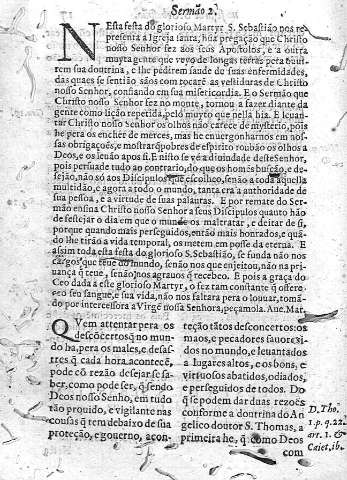 Sermão 2.
NEsta festa do glorioso Martyr S. Sebastião nos re-
presenta a Igreja santa, hũa pregação que Christo
nosso Senhor fez aos seus Apostolos, e a outra
muyta gente que veyo de longas terras pera ouui-
rem sua doutrina, e lhe pedirem saude de suas enfermidades,
das quaes se sentião sãos com tocarẽ as vestiduras de Christo
nosso Senhor, confiando em sua misericordia. E o Sermão que
Christo nosso Senhor fez no monte, tornou a fazer diante da
gente como lição repetida, pelo muyto que nella hia. E leuan-
tar Christo nosso Senhor os olhos não carece de mysterio, pois
he pera os encher de merces, mas he enuergonharmonos em nos-
sas obrigações, e mostrar q̃ pobres de espirito roubão os olhos a
Deos, e os leuão apos si. E nisto se vé a diuindade deste Senhor,
pois persuade tudo ao contrario, do que os homẽs buscão, e de-
sejão, não só aos Discipulos que escolheo, senão a toda aquella
multidão, e agora a todo o mundo, tanta era a authoridade de
sua pessoa, e a virtude de suas palauras. E por remate do Ser-
mão ensina Christo nosso Senhor a seus Discipulos quanto hão
de festejar o dia em que o mundo os maltratar, e deitar de si,
porque quando mais perseguidos, então mais honrados, e quã-
do lhe tirão a vida temporal, os metem em posse da eterna. E
assim toda esta festa do glorioso S. Sebastião, se funda não nos
cargos que teue do mundo, senão nos que enjeitou, não na pri-
uança q̃ teue, senão nos agrauos q̃ recebeo. E pois a graça do
Ceo dada a este glorioso Martyr, o fez tam constante q̃ offere-
ceo seu sangue, e sua vida, não nos faltara pera o louuar, tomã-
do por intercessora a Virgẽ nossa Senhora, peçamola. Aue. Mar.
QVem attentar pera os
desconcertos q̃ no mun-
do ha, pera os males, e desas-
tres q̃ cada hora acontecẽ,
pode cõ rezão desejar se sa-
ber, como pode ser, q̃ sendo
Deos nosso Senhor, em tudo
tão prouido, e vigilante nas
cousas q̃ tem debaixo de sua
proteção, e gouerno, acon-
teção tãtos desconcertos: os
maos, e pecadores fauoreci-
dos no mundo, e leuantados
a lugares altos, e os bons, e
virtuosos abatidos, odiados,
e perseguidos de todos. Do
q̃ se podem dar duas rezões
conforme a doutrina do An-
gelico doutor S. Thomas, a
primeira he, q̃ como Deos
com
D. Tho.
1. p. q. 22.
art. 1. &
Caiet. ib.